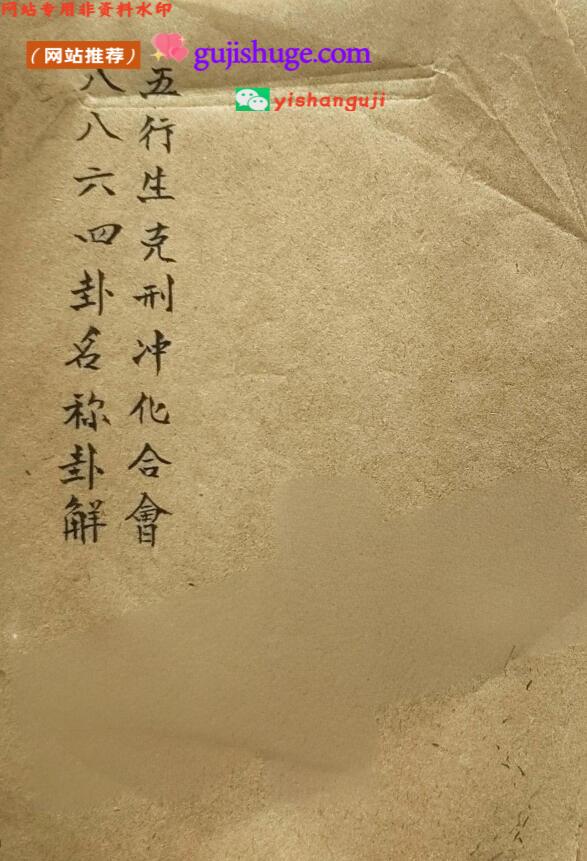 网站专用非资料水印
（网站推荐）
gujishuge.com
yishanguji
五行生克刑冲化合會
八八六四卦名称卦解